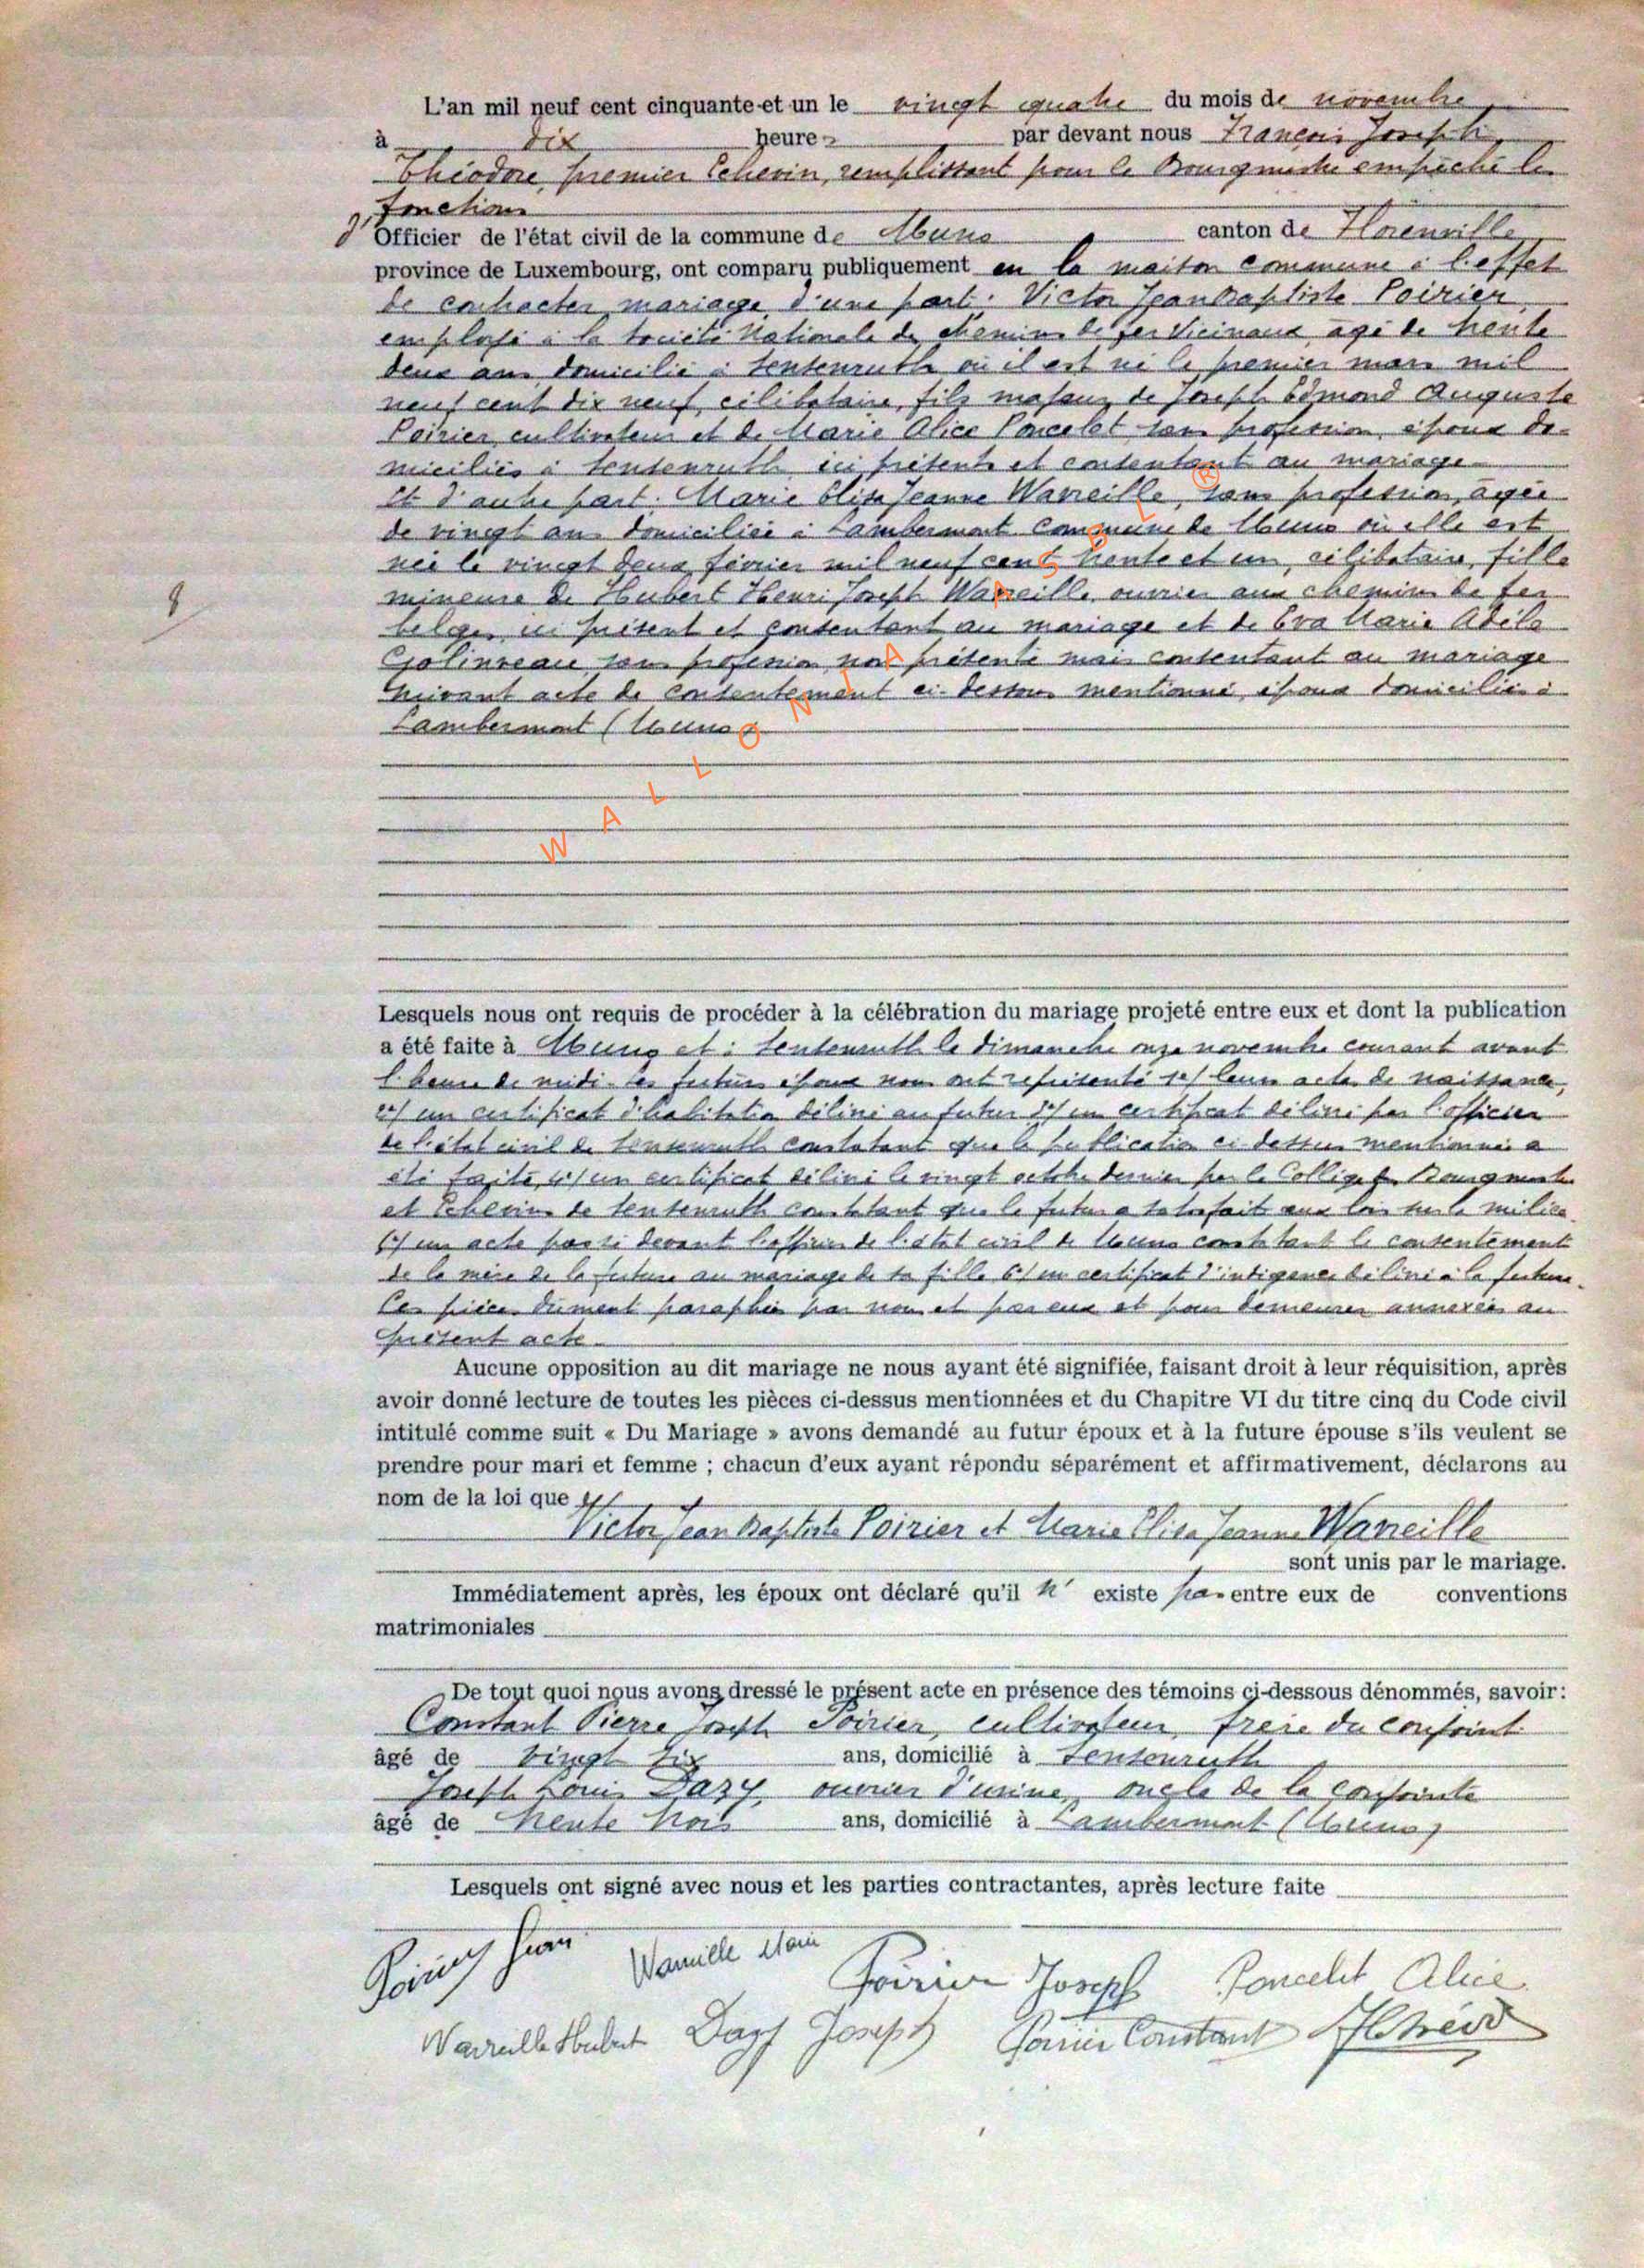 L'an mil neuf cent cinquante et un le vingt quatre du mois de novembre,
à dix heures par devant nous François Joseph
Théodore, premier Echevin, remplissant pour le Bourgmestre empêché les
fonctions
d'Officier de l'état civil de la commune de Muno canton de Florenville
province de Luxembourg, ont comparu publiquement en la maison commune à l'effet
de contracter mariage, d'une part: Victor Jean Baptiste Poirier,
employé à la Société Nationale de chemins de fer Vicinaux, âgé de trente
deux ans domicilié à Sensenruth où il est né le premier mars mil
neuf cent dix neuf, célibataire, fils majeur de Joseph Edmond Auguste
Poirier cultivateur et de Marie Alice Poncelet, sans profession, époux do-
miciliés à Sensenruth ici présents et consentant au mariage
Et d'autre part: Marie Elisa Jeanne Warzeille, sans profession, agée
de vingt ans domiciliée à Lambermont commune de Muno où elle est
née le vingt deux février mil neuf cent trente et un, célibataire, fille
mineure de Hubert Henri Joseph Warzeille, ouvrier aux chemins de fer
belges, ici présent et consentant au mariage et de Eva Marie Adèle
sans profession, non présente mais consentant au mariage
suivant acte de consentement ci-dessous mentionné, époux domiciliés à
Lambermont (Muno)
8
WALLONIA ASBL ®
Lesquels nous ont requis de procéder à la célébration du mariage projeté entre eux et dont la publication
a été faite à Muno et à Sensenruth le dimanche onze novembre courant avant
l'heure de midi. Les futurs époux nous ont représenté 1°/ leurs actes de naissance,
2°/ un certificat d'habitation délivré au futur 3°/ un certificat délivré par l'officier
de l'état civil de Sensenruth constatant que la publication ci-dessus mentionnée a
été faite, 4°/ un certificat délivré le vingt octobre dernier par le Collège des Bourgmestre
et Echevins de Sensenruth constatant que le futur a satisfait aux lois sur la milice
5°/ un acte passé devant l'officier de l'état civil de Muno constatant le consentement
de la mère de la future au mariage de sa fille 6°/ un certificat d'indigence délivré à la future.
Ces pièces dûment paraphées par nous et par eux et pour demeurer annexées au
présent acte.
Aucune opposition au dit mariage ne nous ayant été signifiée, faisant droit à leur réquisition, après
avoir donné lecture de toutes les pièces ci-dessus mentionnées et du Chapitre VI du titre cinq du Code civil
intitulé comme suit « Du Mariage » avons demandé au futur époux et à la future épouse s'ils veulent se
prendre pour mari et femme ; chacun d'eux ayant répondu séparément et affirmativement, déclarons au
nom de la loi que
Victor Jean Baptiste Poirier et Marie Elisa Jeanne Warzeille
sont unis par le mariage.
Immédiatement après, les époux ont déclaré qu'il n' existe pas entre eux de conventions
matrimoniales
De tout quoi nous avons dressé le présent acte en présence des témoins ci-dessous dénommés, savoir:
Constant Pierre Joseph Poirier, cultivateur, frère du conjoint
âgé de vingt six ans, domicilié à Sensenruth
Joseph Louis Dazy, ouvrier d'usine, oncle de la conjointe
âgé de trente trois ans, domicilié à Lambermont (Muno)
Lesquels ont signé avec nous et les parties contractantes, après lecture faite
Poirier Jean Warzeille Marie Poirier Joseph Poncelet Alice
Warzeille Hubert Dazy Joseph Poirier Constant